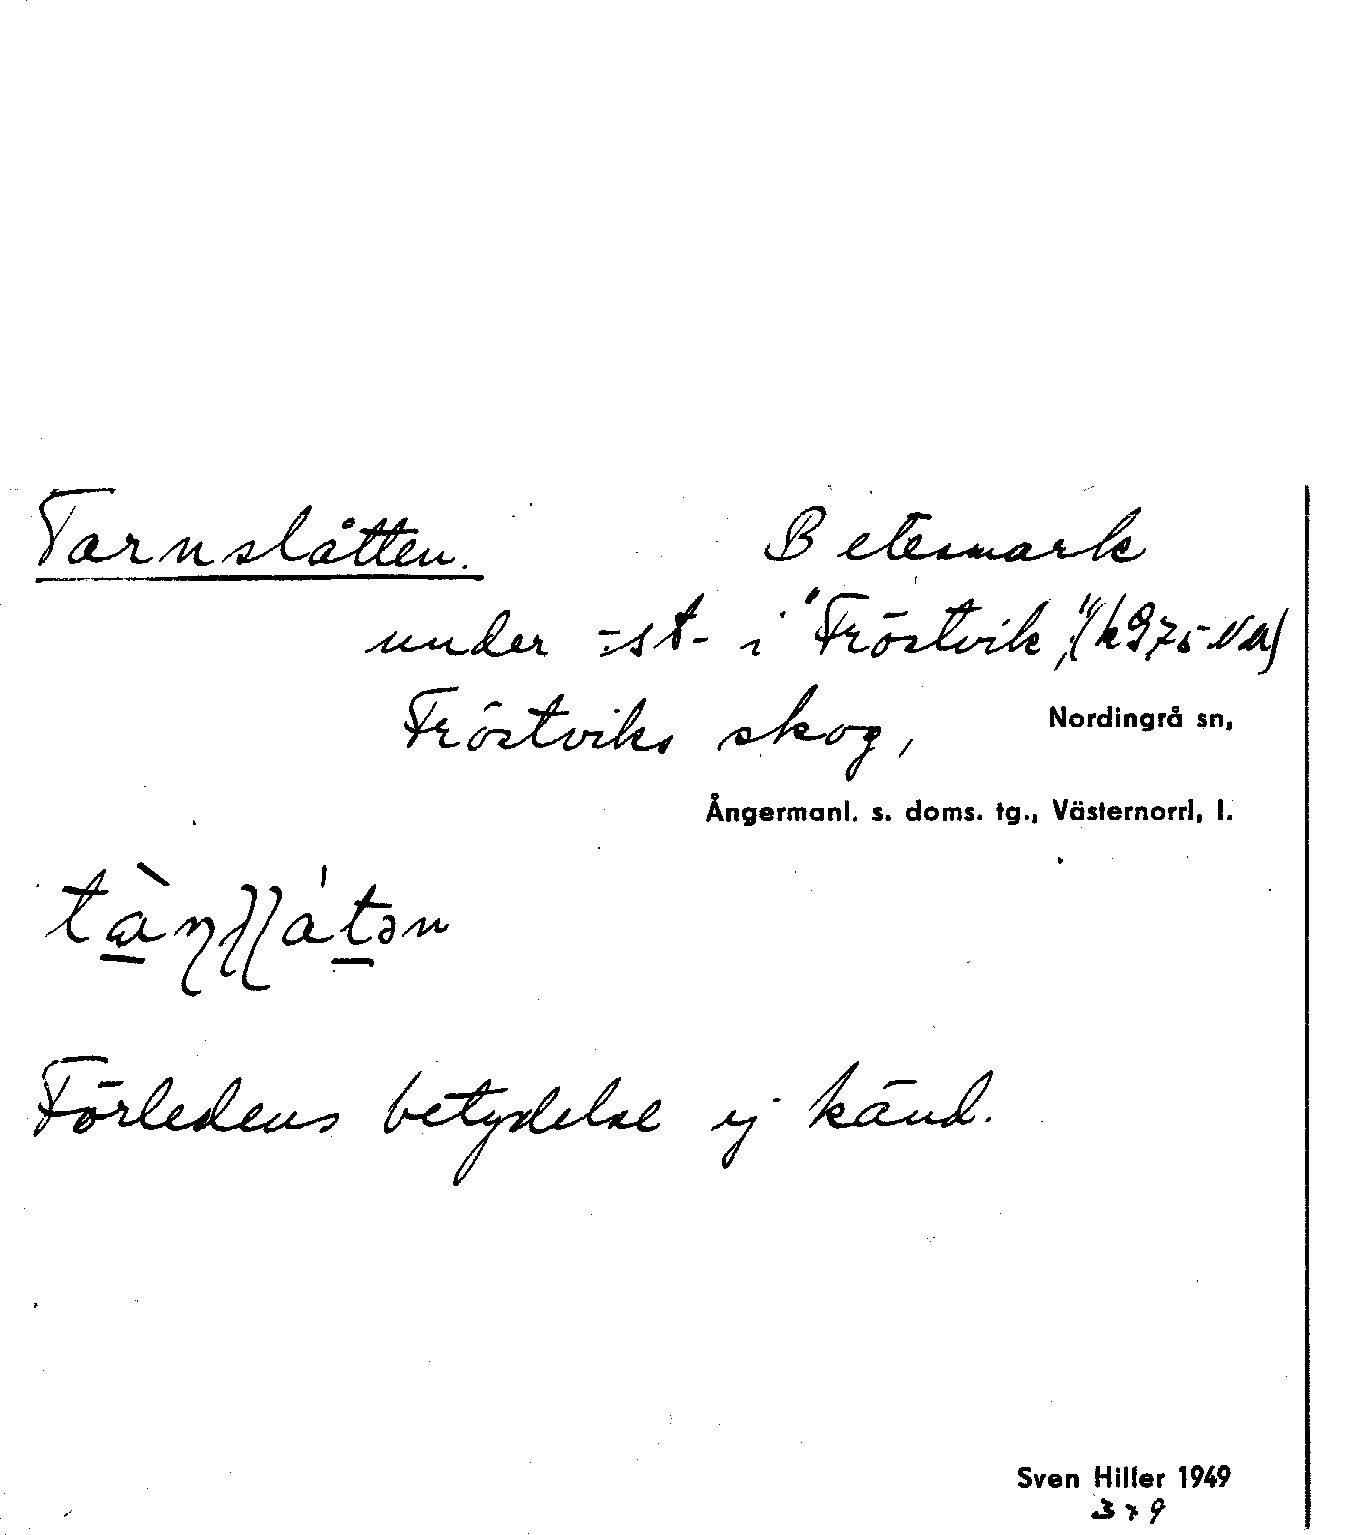 Tarnslåtten. Betesmark
under =st- i "Fröstvik",
Fröstviks skog, Nordingrå sn,
Ångermanl. s. doms. tg., Västernorrl. l.
Förledens betydelse ej känd.
Sven Hiller 1949
379